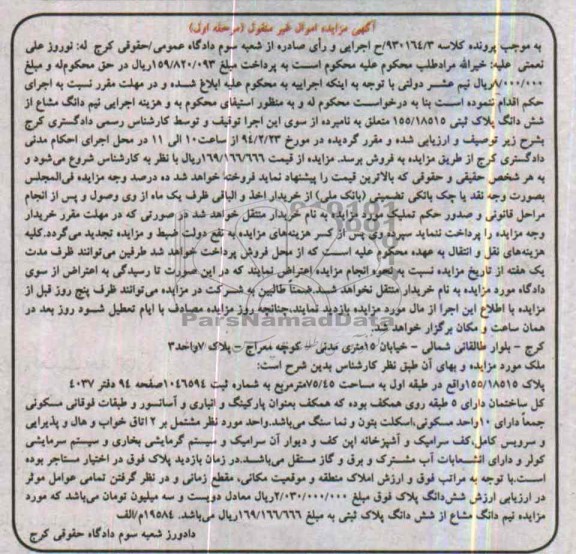 آگهی مزایده اموال غیر منقول (مرحله اول)
به موجب پرونده کلاسه ۹۳۰۱۶۴/۳/ح اجرایی و رأی صادره از شعبه سوم دادگاه عمومی/حقوقی کرج له: نوروز علی
نعمتی علیه: خیرالله مرادطلب محکوم علیه محکوم است به پرداخت مبلغ ۱۵۹/۸۲۰/۰۹۳ریال در حق محکوم‌له و مبلغ
۸/۰۰۰/۰۰۰ریال نیم عشر دولتی با توجه به اینکه اجراییه به محکوم علیه ابلاغ شده و در مهلت مقرر نسبت به اجرای
حکم اقدام ننموده است بنا به درخواست محکوم له و به منظور استیفای محکوم به و هزینه اجرایی نیم دانگ مشاع از
شش دانگ پلاک ثبتی ۱۵۵/۱۸۵۱۵ متعلق به نامبرده از سوی این اجرا توقیف و توسط کارشناس رسمی دادگستری کرج
بشرح زیر توصیف و ارزیابی شده و مقرر گردیده در مورخ ۹۴/۲/۲۳ از ساعت۱۰ الی ۱۱ در محل اجرای احکام مدنی
دادگستری کرج از طریق مزایده به فروش برسد. مزایده از قیمت ۱۶۹/۱۶۶/۶۶۶ریال با نظر به کارشناس شروع می‌شود و
به هر شخص حقیقی و حقوقی که بالاترین قیمت را پیشنهاد نماید فروخته خواهد شد ده درصد وجه مزایده فی‌المجلس
بصورت وجه نقد یا چک بانکی تضمینی (بانک ملی) از خریدار اخذ و الباقی ظرف یک ماه از وی وصول و پس از انجام
مراحل قانونی و صدور حکم تملیک مورد مزایده به نام خریدار منتقل خواهد شد در صورتی که در مهلت مقرر خریدار
وجه مزایده را پرداخت ننماید سپرده وی پس از کسر هزینه‌های مزایده به نفع دولت ضبط و مزایده تجدید می‌گردد.کلیه
هزینه‌های نقل و انتقال به عهده محکوم علیه است که از محل فروش پرداخت خواهد شد طرفین می‌توانند ظرف مدت
یک هفته از تاریخ مزایده نسبت به نحوه انجام مزایده اعتراض نمایند که در این صورت تا رسیدگی به اعتراض از سوی
دادگاه مورد مزایده به نام خریدار منتقل نخواهد شد.ضمناً طالبین به شرکت در مزایده می‌توانند ظرف پنج روز قبل از
مزایده با اطلاع این اجرا از مال مورد مزایده بازدید نمایند،چنانچه روز مزایده مصادف با ایام تعطیل شود روز بعد در
همان ساعت و مکان برگزار خواهد شد.
ParsNamadData
کرج - بلوار طالقانی شمالی - خیابان ۱۵متری مدنی - کوچه معراج - پلاک ۷واحد۳
ملک مورد مزایده و بهای آن طبق نظر کارشناس بدین شرح است:
پلاک ۱۵۵/۱۸۵۱۵واقع در طبقه اول به مساحت ۷۵/۴۵مترمربع به شماره ثبت ۱۰۴۶۵۹۴صفحه ۹۴ دفتر ۴۰۳۷
کل ساختمان دارای ۵ طبقه روی همکف بوده که همکف بعنوان پارکینگ و انباری و آسانسور و طبقات فوقانی مسکونی
جمعاً دارای ۱۰واحد مسکونی،اسکلت بتون و نما سنگ می‌باشد.واحد مورد نظر مشتمل بر ۲اتاق خواب و هال و پذیرایی
و سرویس کامل،کف سرامیک و آشپزخانه اپن کف و دیوار آن سرامیک و سیستم گرمایشی بخاری و سیستم سرمایشی
کولر و دارای انشعابات آب مشترک و برق و گاز مستقل می‌باشد.در زمان بازدید پلاک فوق در اختیار مستاجر بوده
است.با توجه به مراتب فوق و ارزش املاک منطقه و موقعیت مکانی، مقطع زمانی و در نظر گرفتن تمامی عوامل موثر
در ارزیابی ارزش شش‌دانگ پلاک فوق مبلغ ۲/۰۳۰/۰۰۰/۰۰۰ریال معادل دویست و سه میلیون تومان می‌باشد که مورد
مزایده نیم دانگ مشاع از شش دانگ پلاک ثبتی به مبلغ ۱۶۹/۱۶۶/۶۶۶ریال می‌باشد. ۱۹۵۸۴م/الف
دادورز شعبه سوم دادگاه حقوقی کرج